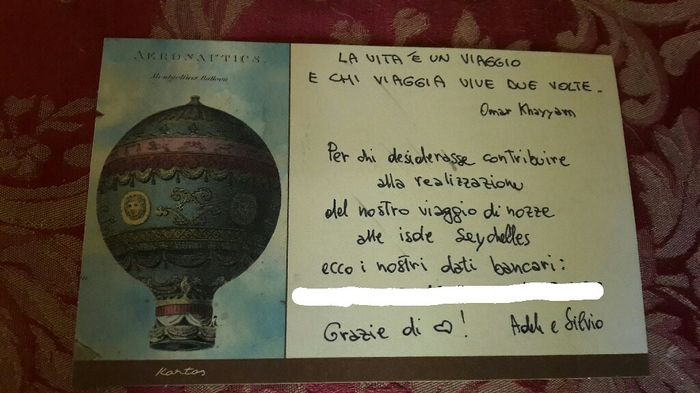 AERONAUTICS.
Montgolfier Balloon
LA VITA È UN VIAGGIO
E CHI VIAGGIA VIVE DUE VOLTE.
Omar Khayyam
Per chi desiderasse contribuire
alla realizzazione
del nostro viaggio di nozze
alle isole Seychelles
ecco i nostri dati bancari:
Grazie di ♡! Adele e Silvio
Kartos